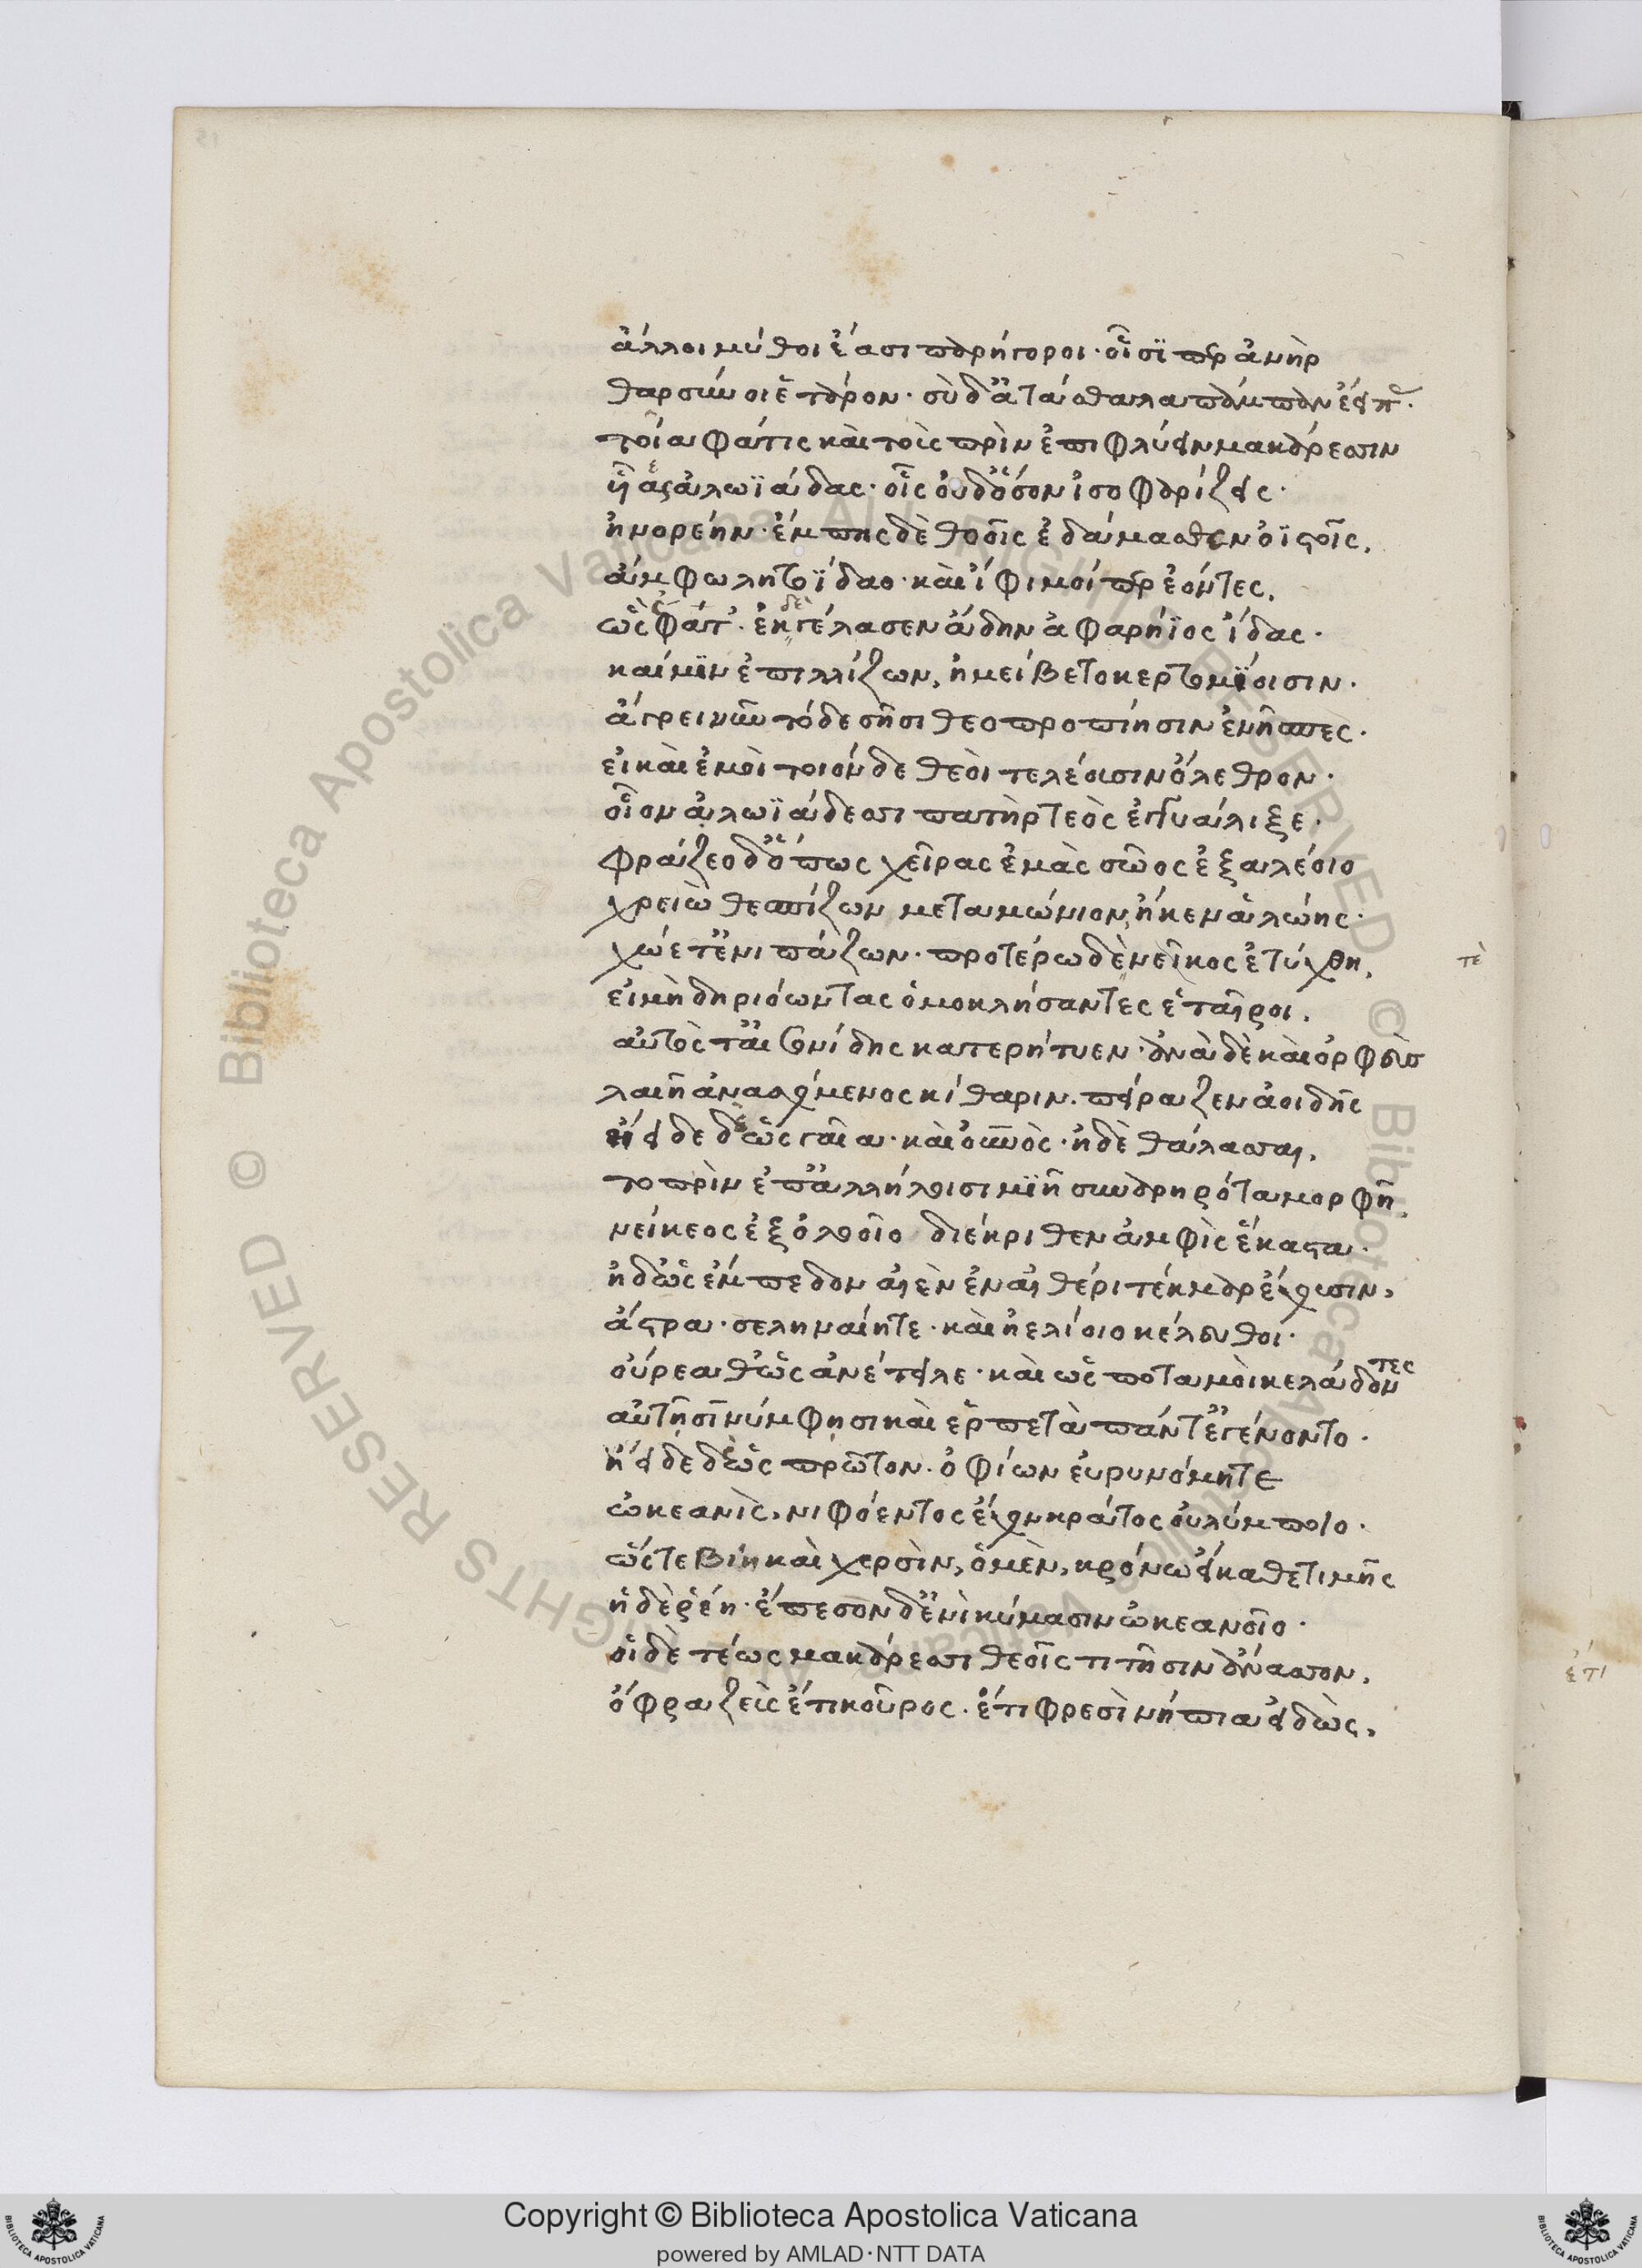 ἄλλοι μῦθοι ἔασι παρήγοροι· οἷσί περ ἀνὴρ
θαρσύνοι ἕταρον· σὺ δ' ἀτάσθαλα πάμπαν ἔειπας.
τοῖα φάτις καὶ τοὺς πρὶν ἐπιφλύειν μακάρεσσιν
υἷας ἀλωϊάδας· οἷς οὐδ' ὅσον ἰσοφαρίζεις·
ἠνορέην· ἔμπης δὲ θοοῖς ἐδάμασθεν ὀϊστοῖς,
ἄμφω λητοΐδαο· καὶ ἴφιμοί περ ἐόντες.
ὣς ἔφατ'· ἐκ δὲ γέλασεν ἄδην ἀφαρήϊος ἴδας·
καί μιν ἐπιλλίζων, ἠμείβετο κερτομίοισιν·
ἄγρει νῦν τόδε σῇσι θεοπροπίησιν ἐνίσπες·
εἰ καὶ ἐμοὶ τοιόνδε θεοὶ τελέουσιν ὄλεθρον·
οἷον ἀλωϊάδεσσι πατὴρ τεὸς ἐγγυάλιξε·
φράζεο δ' ὅπως χεῖρας ἐμὰς σῶος ἐξαλέοιο
χρειὼ θεσπίζων μεταμώνιον, ἤ κεν ἁλώης·
χώετ' ἐνιπτάζων· προτέρω δὲ νεῖκος ἐτύχθη,
εἰ μὴ δηριόωντας ὁμοκλήσαντες ἑταῖροι.
αὐτός τ' αἰσονίδης κατερήτυεν· ἀνὰ δὲ καὶ ὀρφεὺς
λαιῇ ἀνασχόμενος κίθαριν. πείραζεν ἀοιδῆς
ἤειδε δ' ὡς γαῖα· καὶ οὐρανὸς· ἠδὲ θάλασσα,
τὸ πρὶν ἐπ' ἀλλήλοισι μιῇ συναρηρότα μορφῇ,
νείκεος ἐξ ὀλοοῖο διέκριθεν ἀμφὶς ἕκαστα·
ἠδ' ὡς ἔμπεδον αἰὲν ἐν αἰθέρι τέκμαρ ἔχουσιν,
ἄστρα· σεληναίη τε· καὶ ἠελίοιο κέλευθοι·
οὔρεά θ' ὡς ἀνέτειλε· καὶ ὡς ποταμοὶ κελάδοντες
αὐτῇσι νύμφησι καὶ ἑρπετὰ πάντ' ἐγένοντο·
ἤειδε δ' ὡς πρῶτον· ὀφίων εὐρυνόμη τε
ὠκεανὶς, νιφόεντος ἔχον κράτος οὐλύμποιο·
ὥς τε βίῃ καὶ χερσὶν, ὁ μὲν, κρόνω εἴκαθε τιμῆς
ἡ δὲ ῥέῃ· ἔπεσον δ' ἐνὶ κύμασιν ὠκεανοῖο·
οἱ δὲ τέως μακάρεσσι θεοῖς τιτῆσιν ἄνασσον,
ὄφρα ζεὺς ἔτι κοῦρος· ἔτι φρεσὶ νήπια εἰδὼς,
τὲ
ἔτι
© Biblioteca Apostolica Vaticana ALL RIGHTS RESERVED
Copyright © Biblioteca Apostolica Vaticana
powered by AMLAD·NTT DATA
BIBLIOTECA APOSTOLICA VATICANA
BIBLIOTECA APOSTOLICA VATICANA